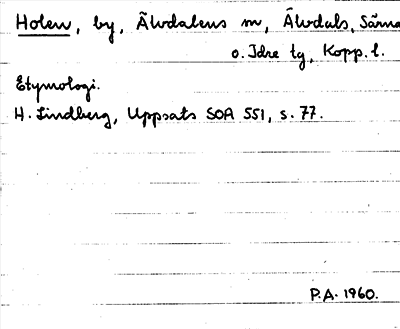 Holen, by, Älvdalens m, Älvdals, Särna
o. Idre tg, Kopp. l.
Etymologi.
H. Lindberg, Uppsats SOA 551, s. 77.
P.A. 1960.